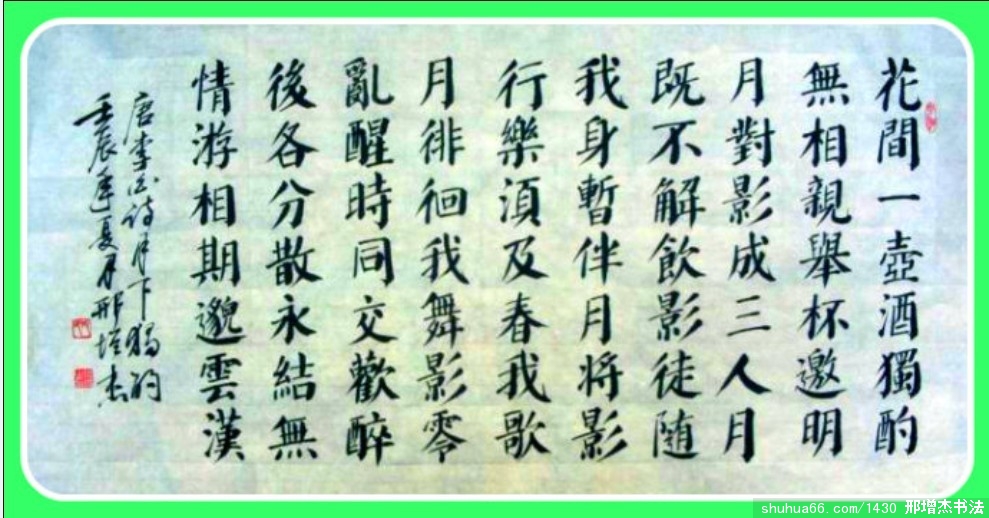 花間一壺酒獨酌
無相親舉杯邀明
月對影成三人月
既不解飲影徒随
我身暫伴月将影
行樂須及春我歌
月徘徊我舞影零
亂醒時同交歡醉
後各分散永結無
情游相期邈雲漢
唐李白詩月下獨酌
壬辰年夏月邢增杰
shuhua66.com/1430 邢增杰书法